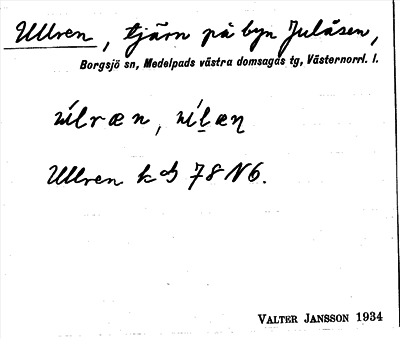 Ullren, tjärn på byn Julåsen,
Borgsjö sn, Medelpads västra domsagas tg, Västernorrl. l.
Ullren 78 N6.
VALTER JANSSON 1934